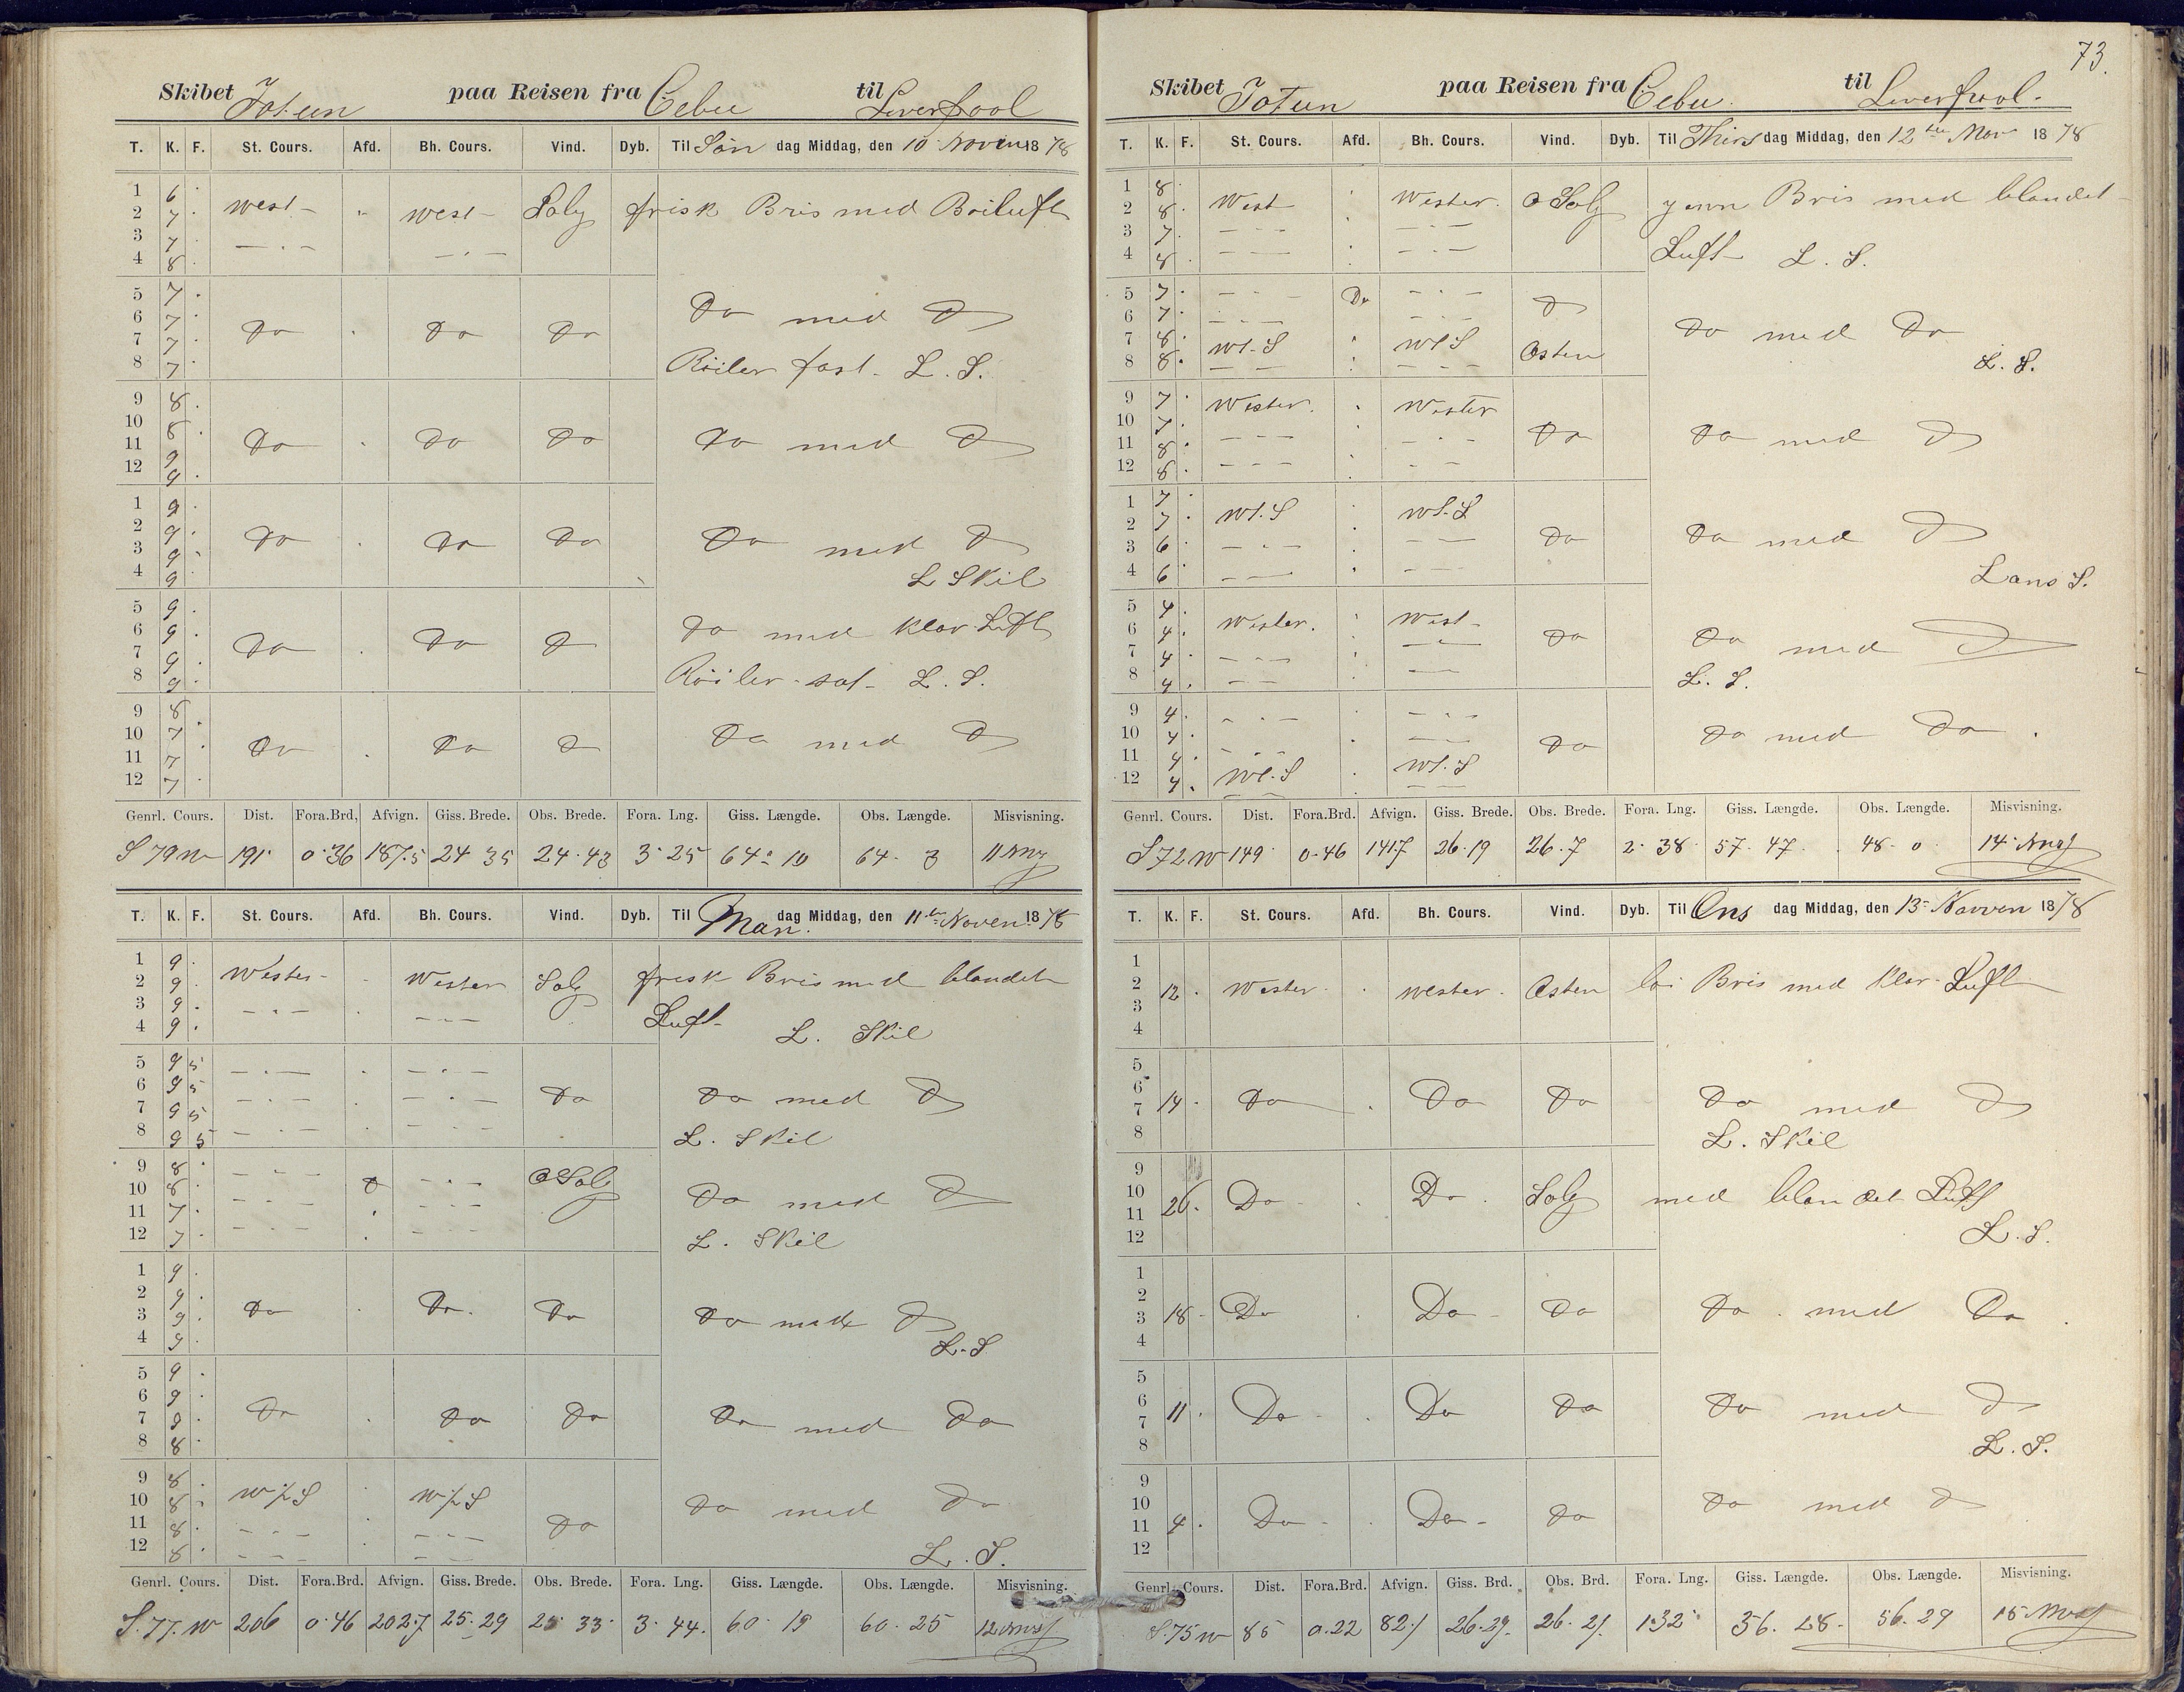 Skibet Jotun paa Reisen fra Cebu til Liverpool
T. K. F. St. Cours. Afd. Bh. Cours. Vind. Dyb. Til Søn dag Middag, den 10 Noven 1878
1 6 .
2 7 . west - west - Solg frisk Bris med Boiluft
3 7 . — . — — . —
4 8 .
5 7 .
6 7 . Do . Do Do Do med D
7 7 .
8 7 . Röiler fast. L. S.
9 8 .
10 8 .
11 9 Do . Do Do Do med D
12 9 .
1 9 .
2 9 . Do . Do Do Do med D
3 9 .
4 9 L Skil
5 9 .
6 9 . Do . Do D Do med Klar Luft
7 9 .
8 9 . Röiler sat - L. S.
9 8
10 7 . Do . Do D Do med D
11 7
12 7 .
Genrl. Cours. Dist. Fora.Brd. Afvign. Giss. Brede. Obs. Brede. Fora. Lng. Giss. Længde. Obs. Længde. Misvisning.
S 79 W 191 0 36 187.5 24 35 24. 43 3 25 64° 10 64. 3 11
T. K. F. St. Cours. Afd. Bh. Cours. Vind. Dyb. Til Man dag Middag, den 11te Noven. 1878
1 9 .
2 9 . Wester - Wester Solg frisk Bris med blandet
3 9 . — . — — . —
4 9 . Luft - L. Skil
5 9 5 — . — — . —
6 9 5 — . — — . — Do Do med D
7 9 5
8 9 5 — . — — . — L. Skil
9 8 . — . — — . — OSolg
10 8 . — . — — . — Do med D
11 7 .
12 7 . — . — — . — L. Skil
1 9 .
2 9 .
3 9 . Do . Do. Do Do med D
4 9 . L. S
5 9 .
6 9 . Do . Do Do Do med Do
7 9 .
8 8 .
9 8 .
10 8 . W/.S W/.S Do med Do
11 8 . — . — — . — Do
12 8 . — . — — . — L. S.
Genrl. Cours. Dist. Fora.Brd. Afvign. Giss. Brede. Obs. Brede. Fora. Lng. Giss. Længde. Obs. Længde. Misvisning.
S. 77. W 206 0 46 202.7 25. 29 25 33 3. 44. 60 19 60. 25 12
73.
Skibet Jotun paa Reisen fra Cebu. til Liverpool.
T. K. F. St. Cours. Afd. Bh. Cours. Vind. Dyb. Til Thirs dag Middag, den 12te Nov 1878
1 8 .
2 8 . West . Wester. OSolg jevn Bris med blandet
3 7 . — . — — . —
4 8 . — . — — . — Luft - L. S.
5 7 . — . — Do — . — D
6 7 . — . — Do med Do
7 8 . Wt. S . Wt S Osten
8 8 . — — — . — L. S.
9 7 . Wester. . Wester
10 7 .
11 8 . — . — — . — Do Do med D
12 8 . — . — — . —
1 7 .
2 7 . Wt. S . Wt. S Do Do med D
3 6 — . — — —
4 6 — — — — Lans S.
5 4 .
6 4 . Wester. . West - Do Do med D
7 4 . — . — — —
8 4 . — — — — L. S.
9 4 . — . — — . —
10 4 . — — Do Do med Do .
11 4 . — . —
12 4 . Wt. S . Wt. S
Genrl. Cours. Dist. Fora.Brd. Afvign. Giss. Brede. Obs. Brede. Fora. Lng. Giss. Længde. Obs. Længde. Misvisning.
S 72 W 149 0. 46 141.7 26. 19 26. 7 2. 38 57. 47. 48. 0 14
T. K. F. St. Cours. Afd. Bh. Cours. Vind. Dyb. Til Ons dag Middag, den 13 Noven 1878
1
2 12 . Wester . Wester. Osten løi Bris med Klar Luft
3
4
5
6
7 14 . Do . Do Do Do med D
8 L. Skil
9
10
11 26 . Do . Do . Solg med blandet Luft
12 L. S.
1
2
3 18 . Do . Do - Do Do . med Do
4
5
6
7 11 . Do - . Do Do Do med D
8 L. S.
9
10 Do med D
11 4 . Do - . Do - Do
12
Genrl. Cours. Dist. Fora.Brd. Afvign. Giss. Brd. Obs. Brd. Fora. Lng. Giss. Længde. Obs. Længde. Misvisning.
S. 75 W 85 0. 22 82.1 26. 29. 26. 21. 1.32 56. 28. 56. 29 15